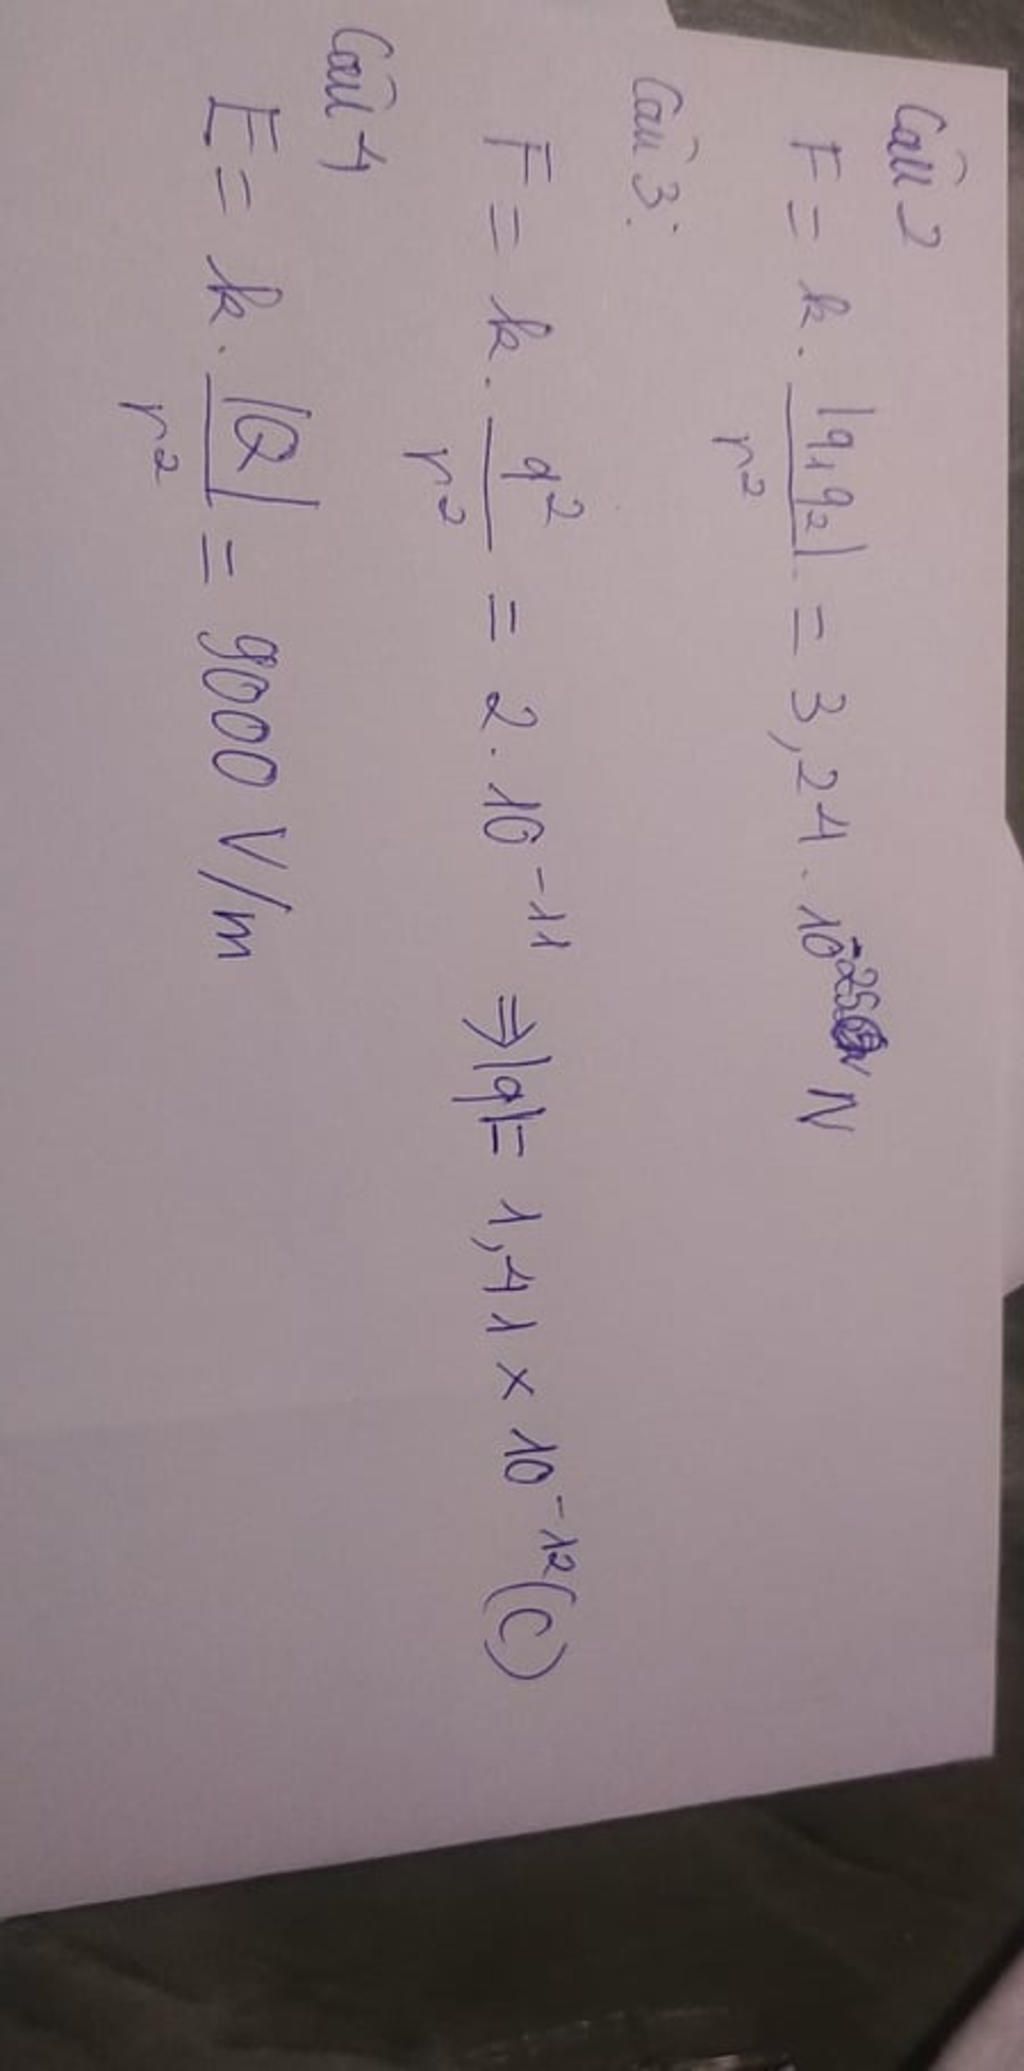 Câu 2
F = k. |q₁q₂| / r² = 3,24. 10⁻²⁵ N
Câu 3:
F = k. q² / r² = 2. 10⁻¹¹ ⇒ |q| = 1,41 × 10⁻¹² (C)
Câu 4
E = k. |Q| / r² = 9000 V/m